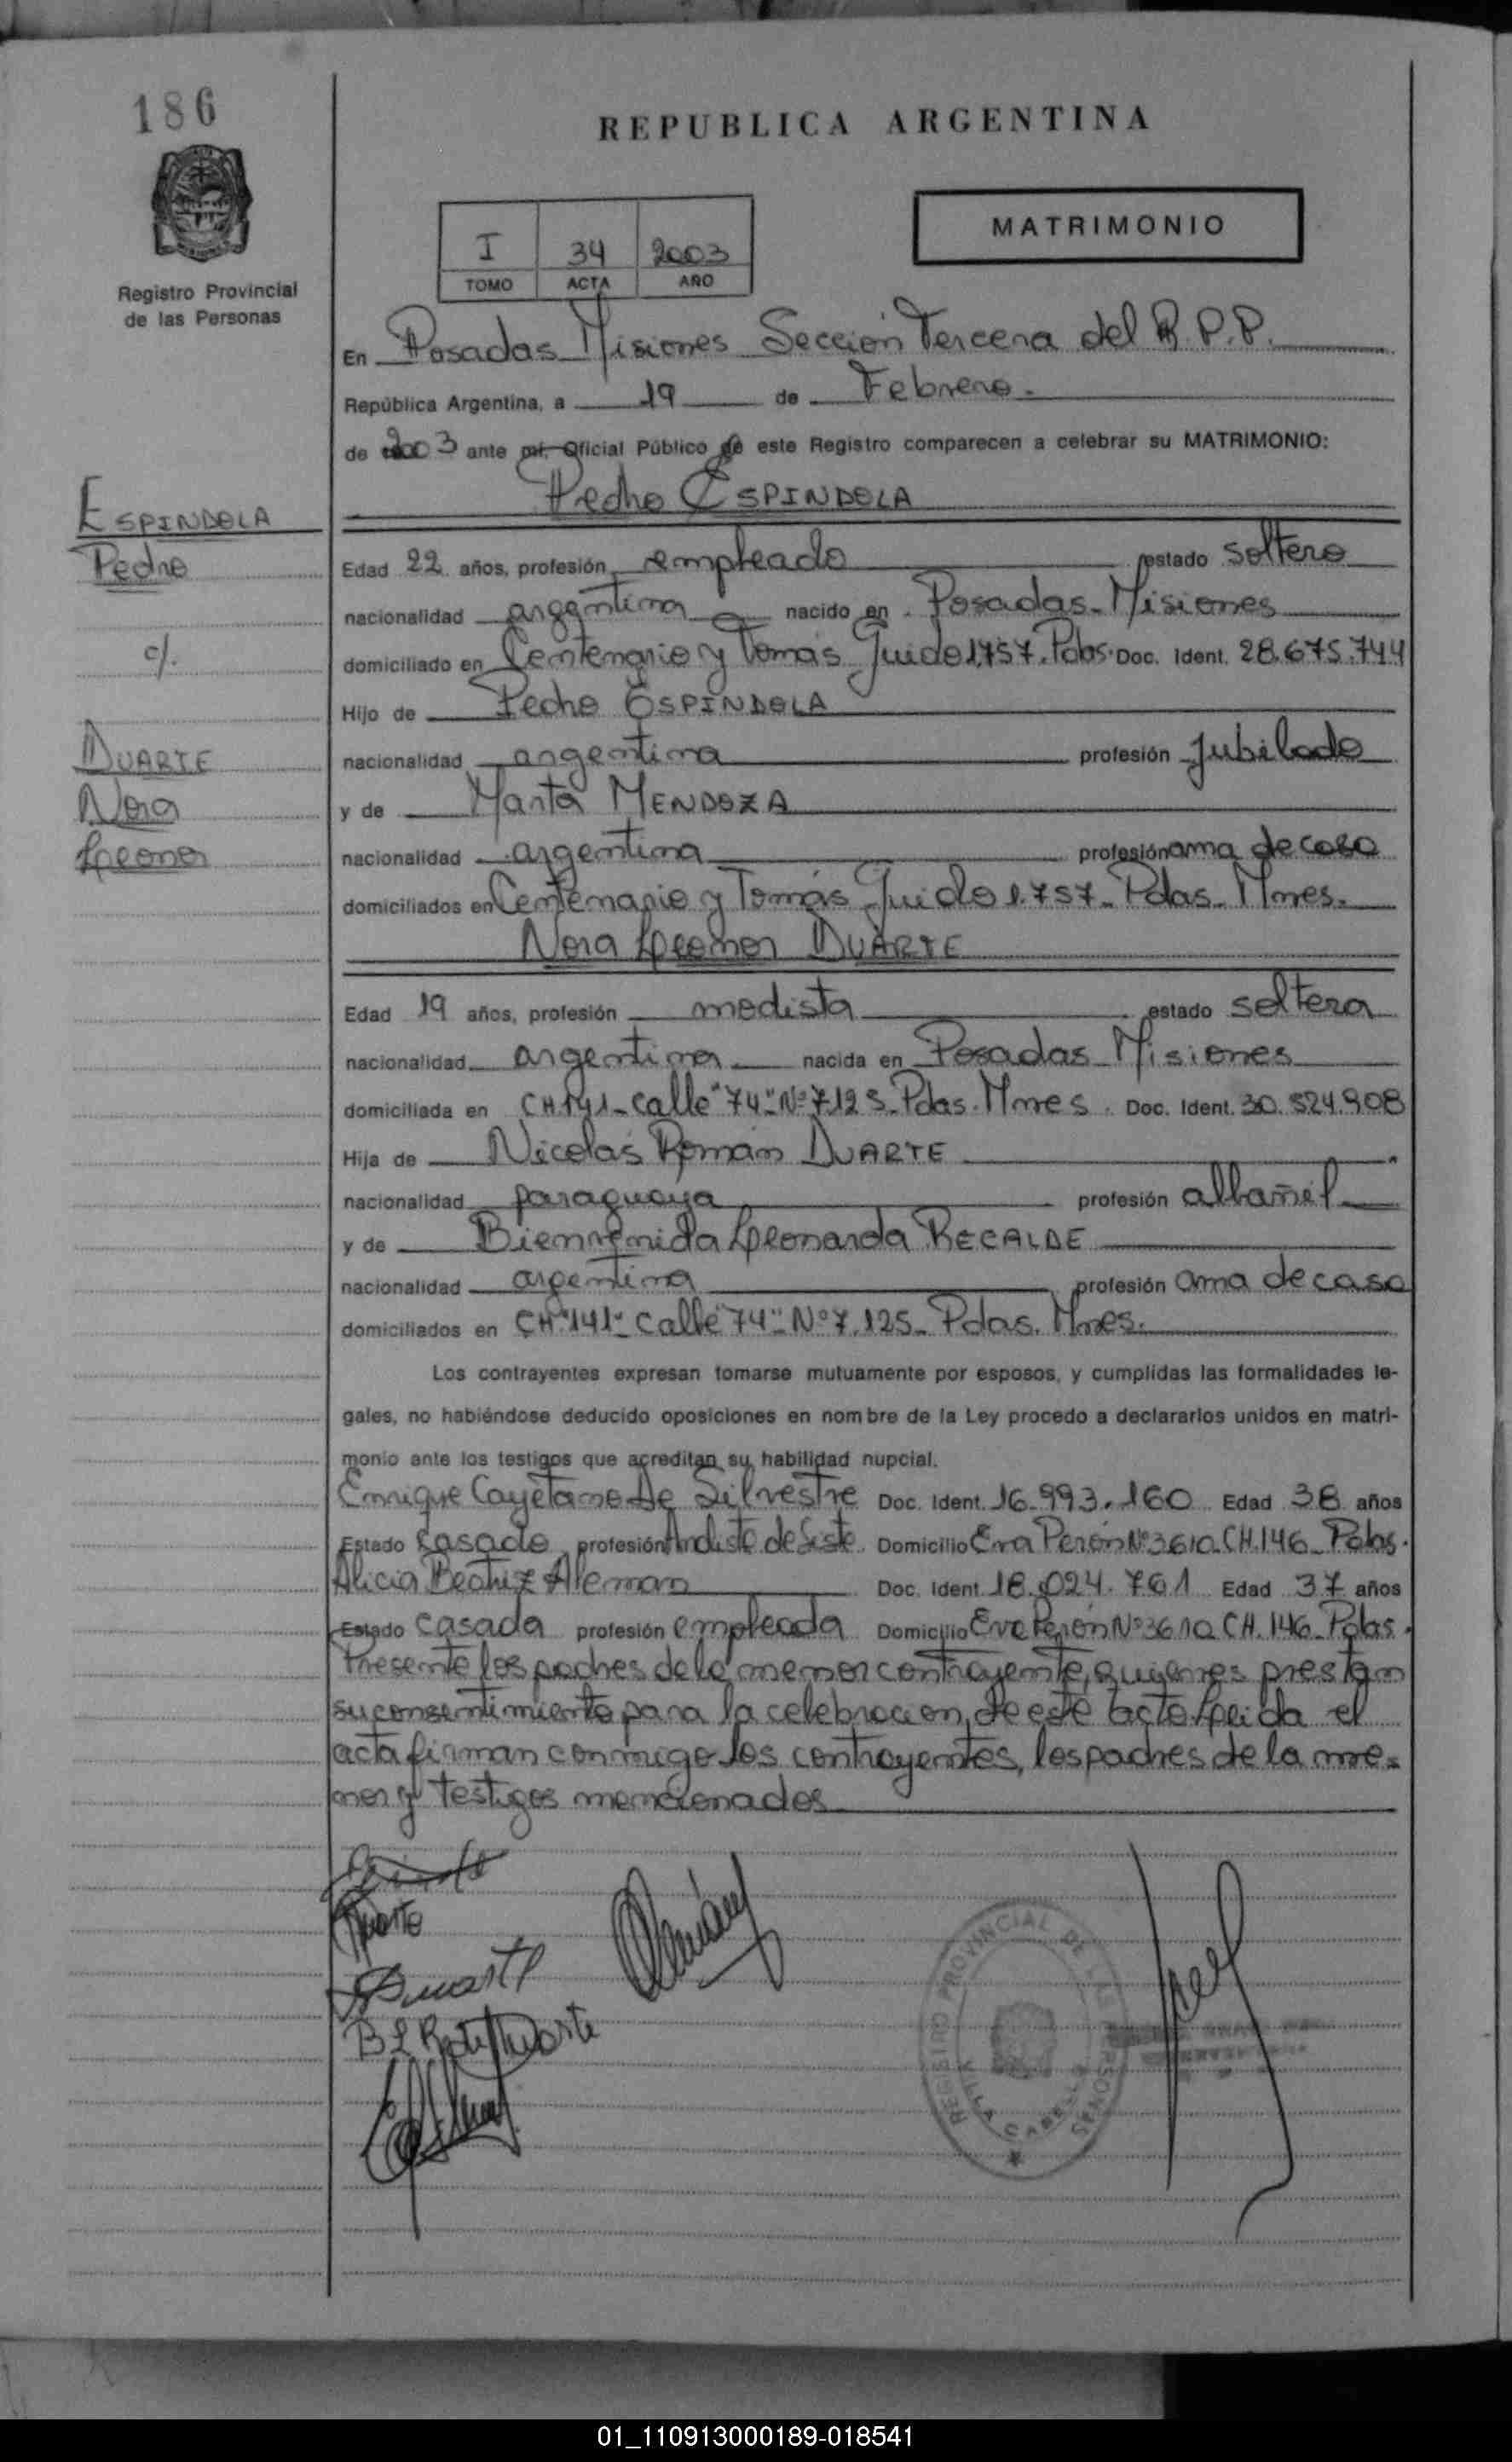 186
REPUBLICA ARGENTINA
Registro Provincial
de las Personas
I 34 2003
TOMO ACTA AÑO
MATRIMONIO
En Posadas Misiones Sección Tercera del R.P.P.
República Argentina, a 19 de Febrero.
de 2003 ante mí, Oficial Público de este Registro comparecen a celebrar su MATRIMONIO:
Pedro ESPINDOLA
ESPINDOLA
Pedro
c/.
DUARTE
Nora
Leonor
Edad 22 años, profesión empleado estado soltero
nacionalidad argentina nacido en Posadas-Misiones
domiciliado en Centenario y Tomás Guido 1.757. Pdas. Doc. Ident. 28.675.744
Hijo de Pedro ESPINDOLA
nacionalidad argentina profesión Jubilado
y de Marta MENDOZA
nacionalidad argentina profesión ama de casa
domiciliados en Centenario y Tomás Guido 1.757- Pdas- Mnes.
Nora Leonor DUARTE
Edad 19 años, profesión modista estado soltera
nacionalidad argentina nacida en Posadas Misiones
domiciliada en CH.141- calle "74" Nº 7.125-Pdas. Mnes. Doc. Ident. 30.524.908
Hija de Nicolás Román DUARTE
nacionalidad paraguaya profesión albañil
y de Bienvenida Leonarda RECALDE
nacionalidad argentina profesión ama de casa
domiciliados en CH"141" calle "74" Nº 7.125- Pdas. Mnes.
Los contrayentes expresan tomarse mutuamente por esposos, y cumplidas las formalidades le-
gales, no habiéndose deducido oposiciones en nombre de la Ley procedo a declararlos unidos en matri-
monio ante los testigos que acreditan su habilidad nupcial.
Enrique Cayetano De Silvestre Doc. Ident. 16.993.160 Edad 38 años
Estado casado profesión Domicilio Eva Perón Nº 3610 CH.146- Pdas.
Alicia Beatriz Aleman Doc. Ident. 18.024.761 Edad 37 años
Estado casada profesión empleada Domicilio Eva Perón Nº 3610 CH.146- Pdas.
Presente los padres de la menor contrayente, quienes prestan
su consentimiento para la celebracion de este acto. Leida el
acta firman conmigo los contrayentes, los padres de la me-
nor y testigos mencionados
Duarte
Duarte
REGISTRO PROVINCIAL DE LAS PERSONAS
VILLA CABELLO
01_110913000189-018541